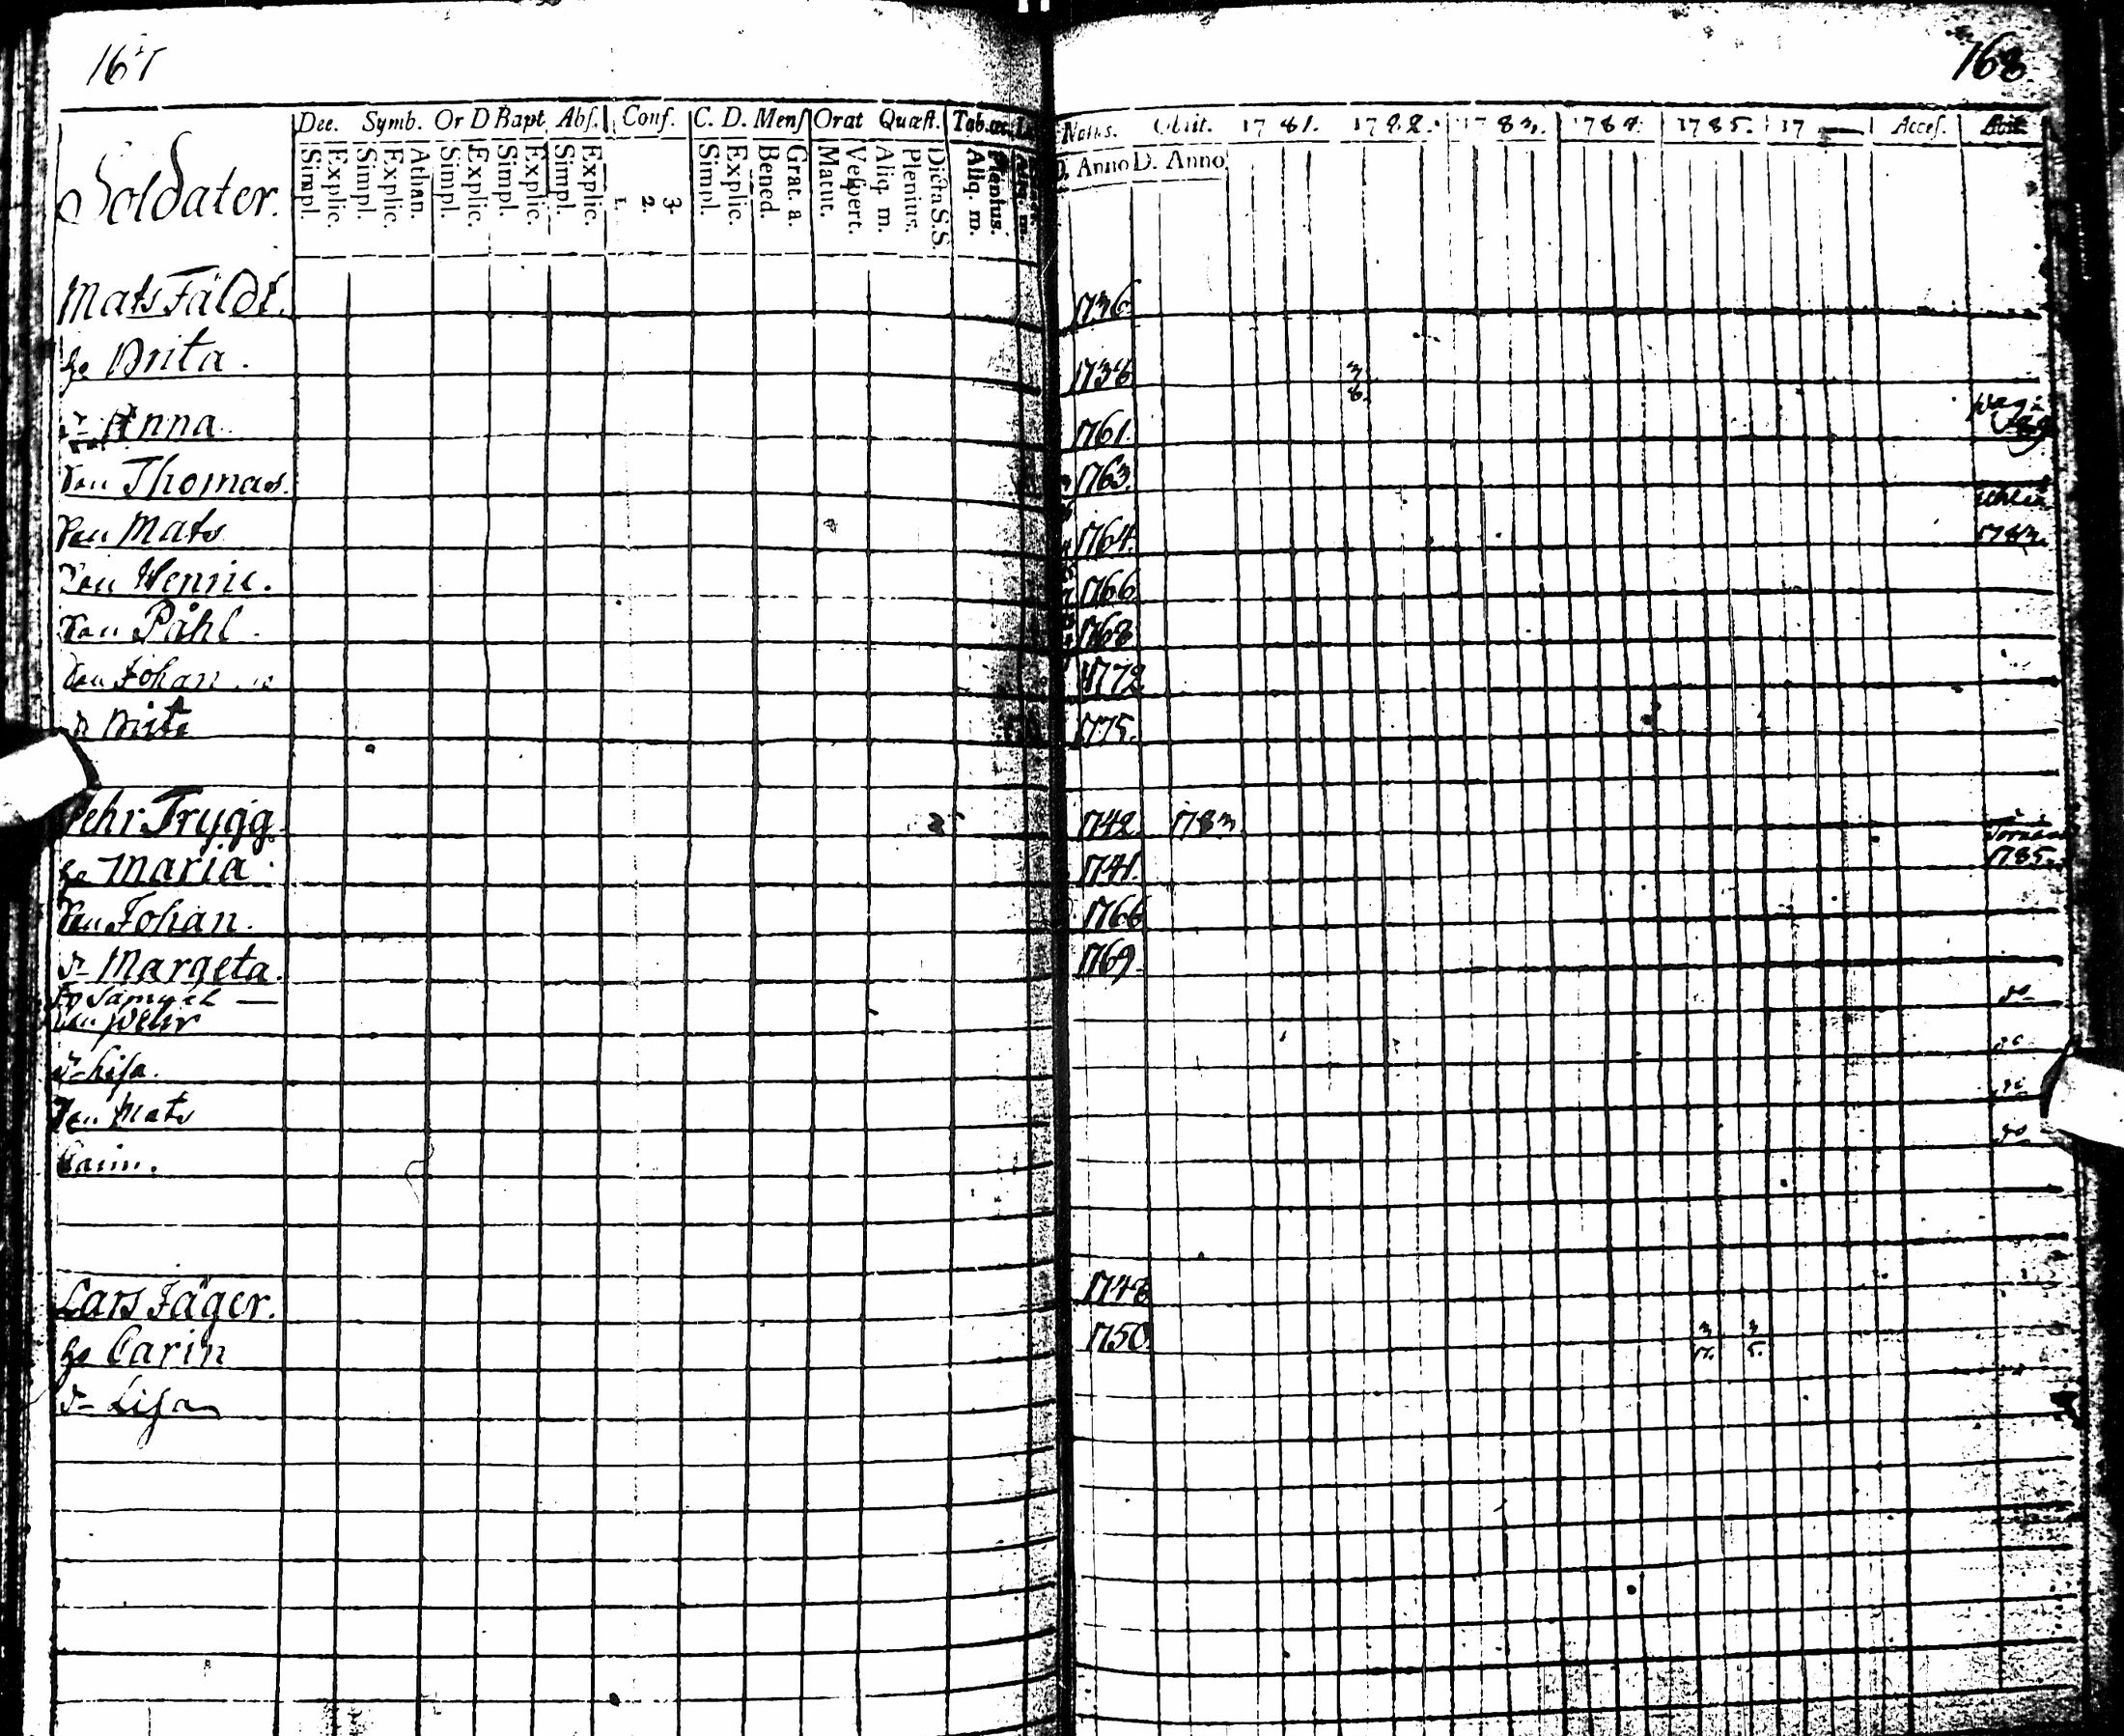 167
168.
Dec. Symb. Or D Bapt Abs. Conf. C. D. Mens Orat Quæst. Tab. œc.
Natus. Obiit. 1781. 1782. 1783. 1784. 1785. 17 Acces. Abit
Simpl. Explic. Simpl. Explic. Athan. Simpl. Explic. Simpl. Explic. Simpl. Explic. 1. 2. 3. Simpl. Explic. Bened. Grat. a. Matut. Vespert. Aliq. m. Plenius. Dicta S.S. Aliq. m. Plenius.
D. Anno D. Anno
Soldater.
Mats Fäldt. 1736
h. Brita. 1738 3 8.
dr Anna 1761.
son Thomas. 1763.
son Mats 1764. 1783.
son Henric. 1766
son Påhl. 1768
son Johan 1772
dr Brita 1775.
Pehr Trygg. 1742. 1783
h. Maria 1741. 1785.
son Johan. 1766
dr Margeta. 1769.
Samuel —
son Petter do
dr Lisa. do
son Mats do
Carin. do
Lars Jäger. 1748
h. Carin 1750. 3 3 5.
dr Lisa